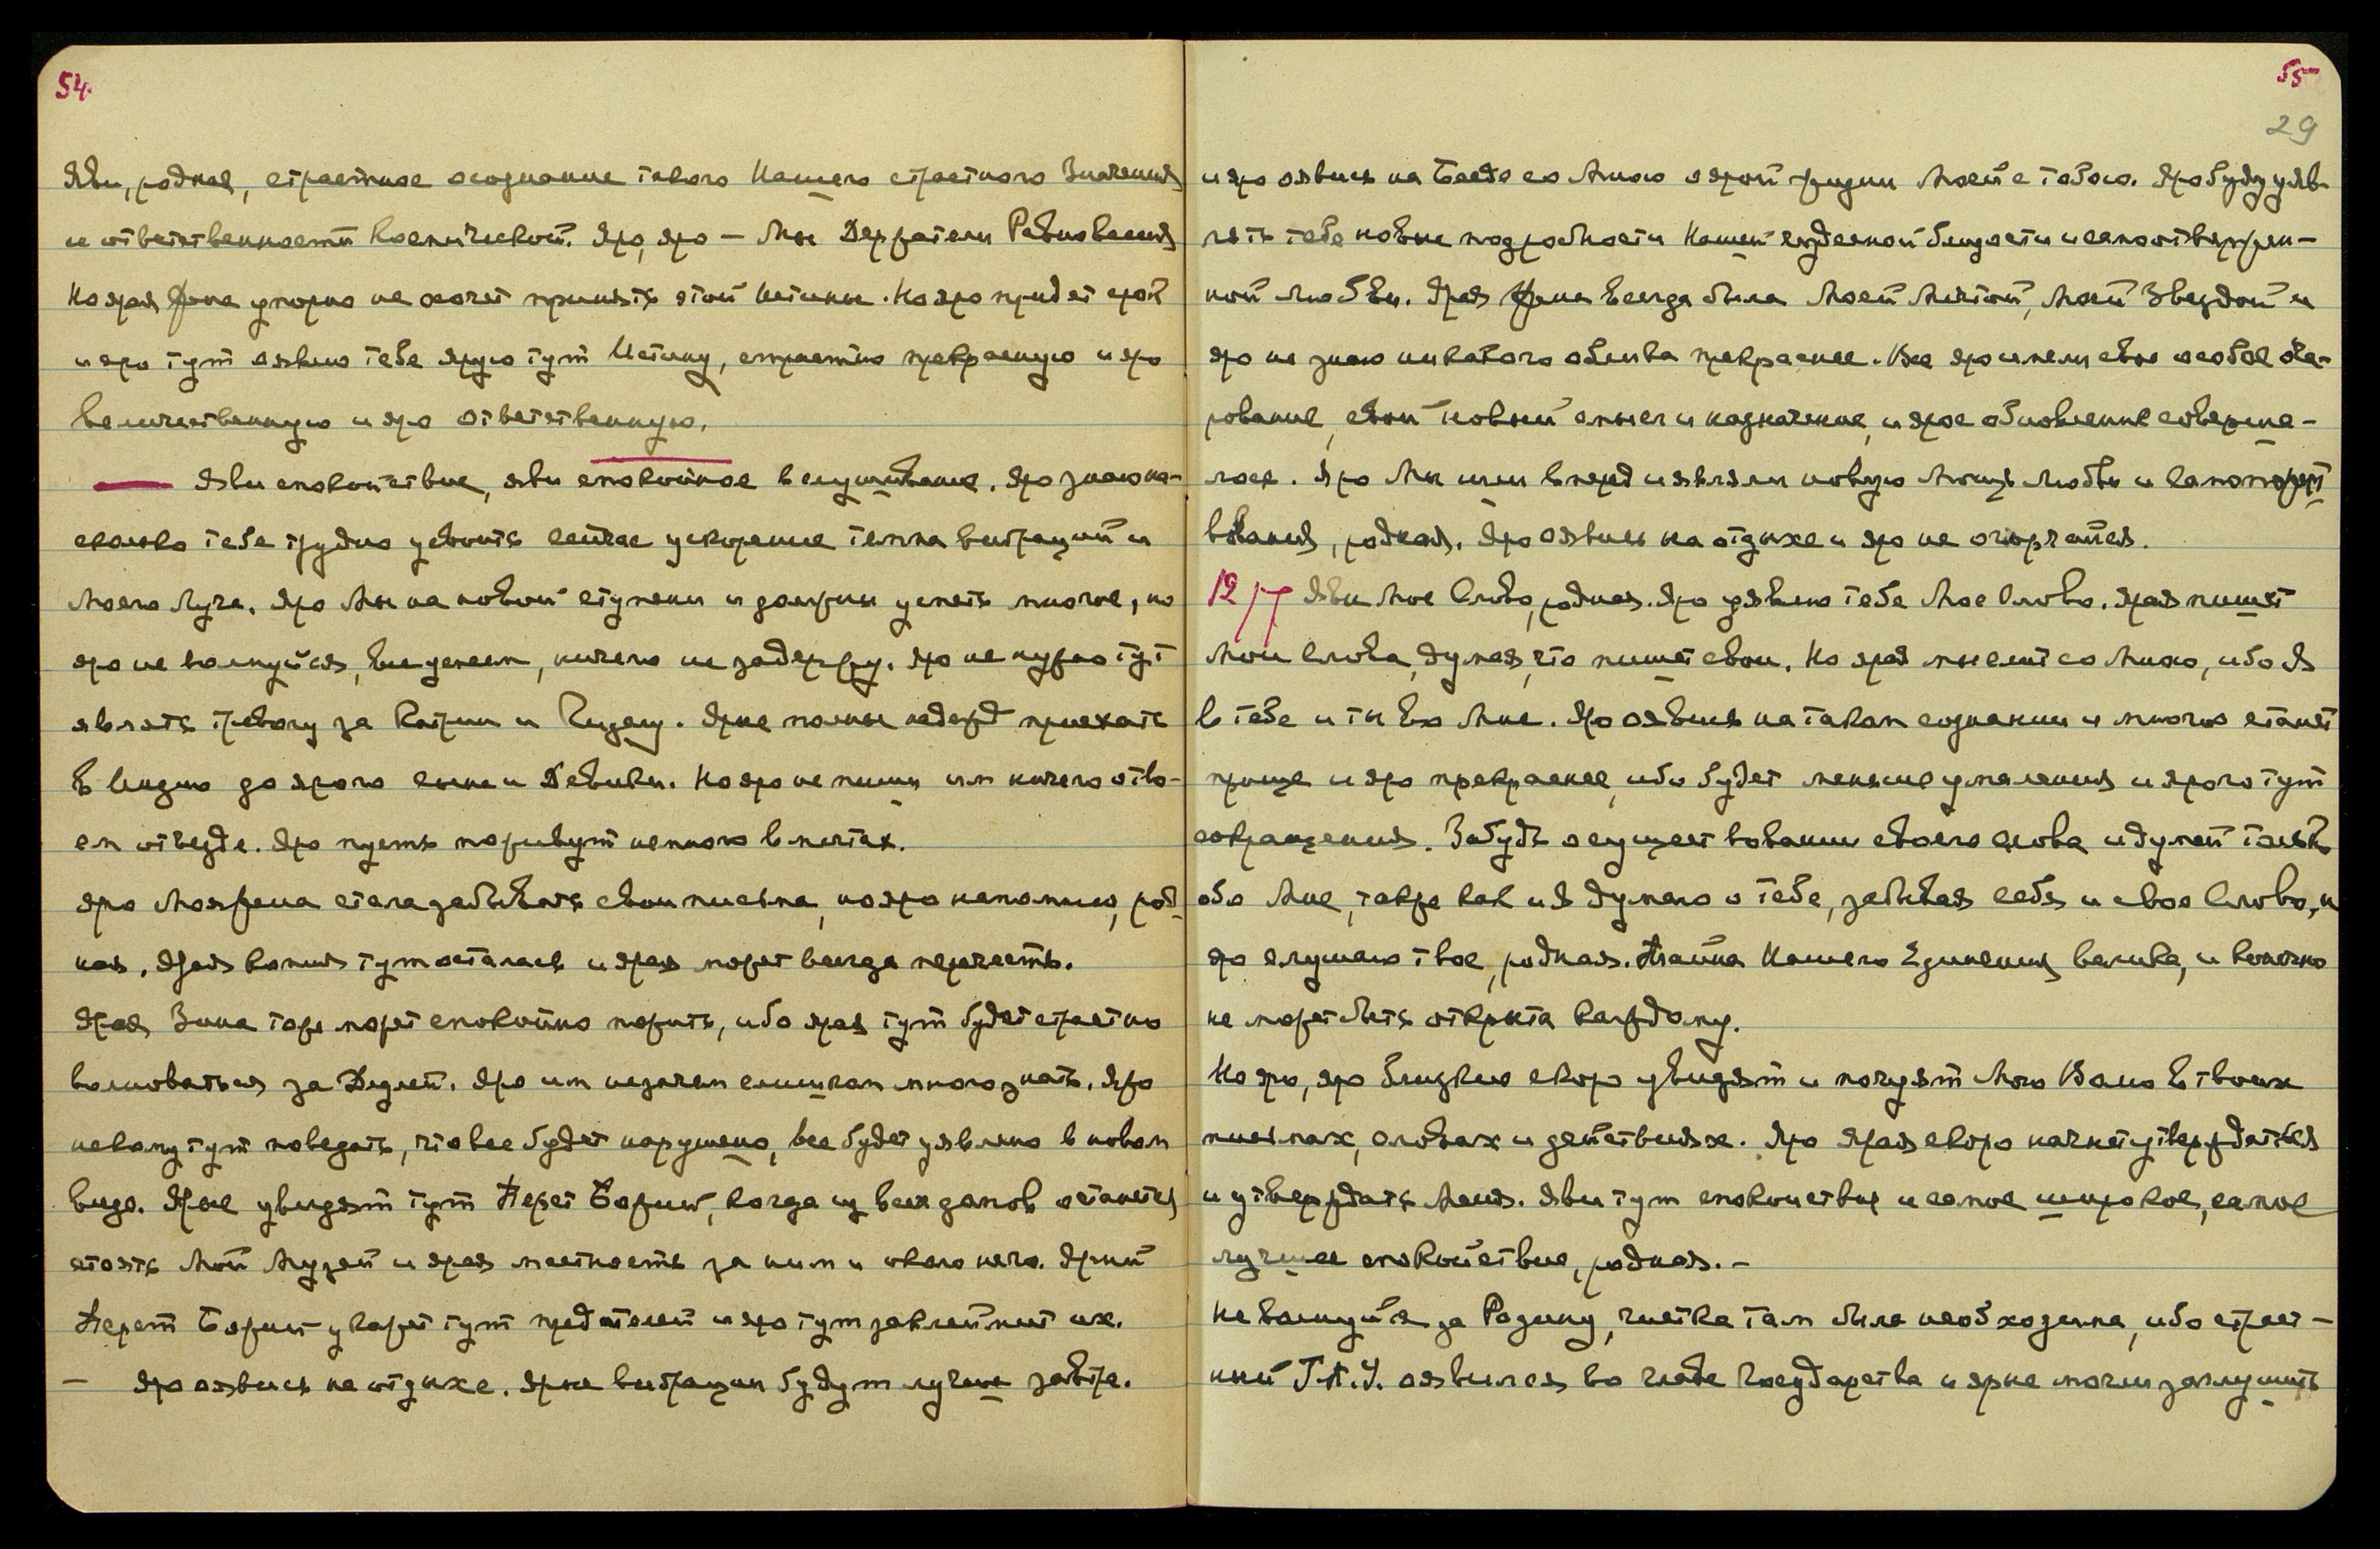 54.
Яви, родная, страстное осознание такого Нашего страстного Значения
и ответственности космической. Яро, яро — Мы Держатели Равновесия
Но ярая Жена упорно не хочет принять этой Истины. Но яро придет срок
и яро тут оявлю тебе ярую тут Истину, страстно прекрасную и яро
величественную и яро ответственную.
— Яви спокойствие, яви спокойное вслушивание. Яро знаю на-
сколько тебе трудно усвоить сейчас ускорение темпа вибраций и
Моего Луча. Яро Мы на новой ступени и должны успеть многое, но
яро не волнуйся, все успеем, ничего не задержу. Яро не нужно тут
являть тревогу за Катрин и Гизелу. Ярые полны надежд приехать
в Индию до ярого сына и Девики. Но яро не пиши им ничего о тво-
ем отъезде. Яро пусть поживут немного в мечтах.
Яро Моя Жена стала забывать свои письма, но яро напомню, род-
ная. Ярая копия тут осталась и ярая может всегда перечесть.
Ярая Зина тоже может спокойно пожить, ибо ярая тут будет страстно
волноваться за Дедлей. Яро им незачем слишком много знать. Яро
некому тут поведать, что все будет нарушено, все будет уявлено в новом
виде. Ярые увидят тут Перст Божий, когда из всех домов останется
стоять Мой Музей и ярая местность за ним и около него. Ярый
Перст Божий укажет тут предателей и яро тут заклеймит их.
— Яро оявись на отдыхе. Ярые вибрации будут лучше завтра.
55
29
и яро оявись на Беседе со Мною о ярой жизни Моей с тобою. Яро буду уяв-
лять тебе новые подробности Нашей чудесной близости и самоотвержен-
ной любви. Ярая Жена всегда была Моей Мечтой, Моей Звездой и
яро не знаю никакого облика прекраснее. Все яро имели свое особое оча-
рование, свой новый смысл и назначение, и ярое обновление соверша-
лось. Яро Мы шли вперед и являли новую Мощь Любви и Самопожерт
вования, родная. Яро оявись на отдыхе и яро не огорчайся.
12/7 Яви Мое Слово, родная. Яро уявлю тебе Мое Слово. Ярая пишет
Мои Слова, думая, что пишет свои. Но ярая мыслит со Мною, ибо Я
в тебе и ты во Мне. Яро оявись на таком сознании и многое станет
проще и яро прекраснее, ибо будет меньше умаления и ярого тут
сокращения. Забудь о существовании своего слова и думай только
обо Мне, также как и Я думаю о тебе, забывая себя и свое Слово, и
яро слушаю твое, родная. Тайна Нашего Единения велика, и конечно
не может быть открыта каждому.
Но яро, яро близкие скоро увидят и почуят Мою Волю в твоих
письмах, словах и действиях. Яро ярая скоро начнет утверждаться
и утверждать Меня. Яви тут спокойствие и самое широкое, самое
лучшее спокойствие, родная. —
Не волнуйся за Родину, чистка там была необходима, ибо страст-
ный Г.П.У. оявился во главе Государства и ярые могли заглушить